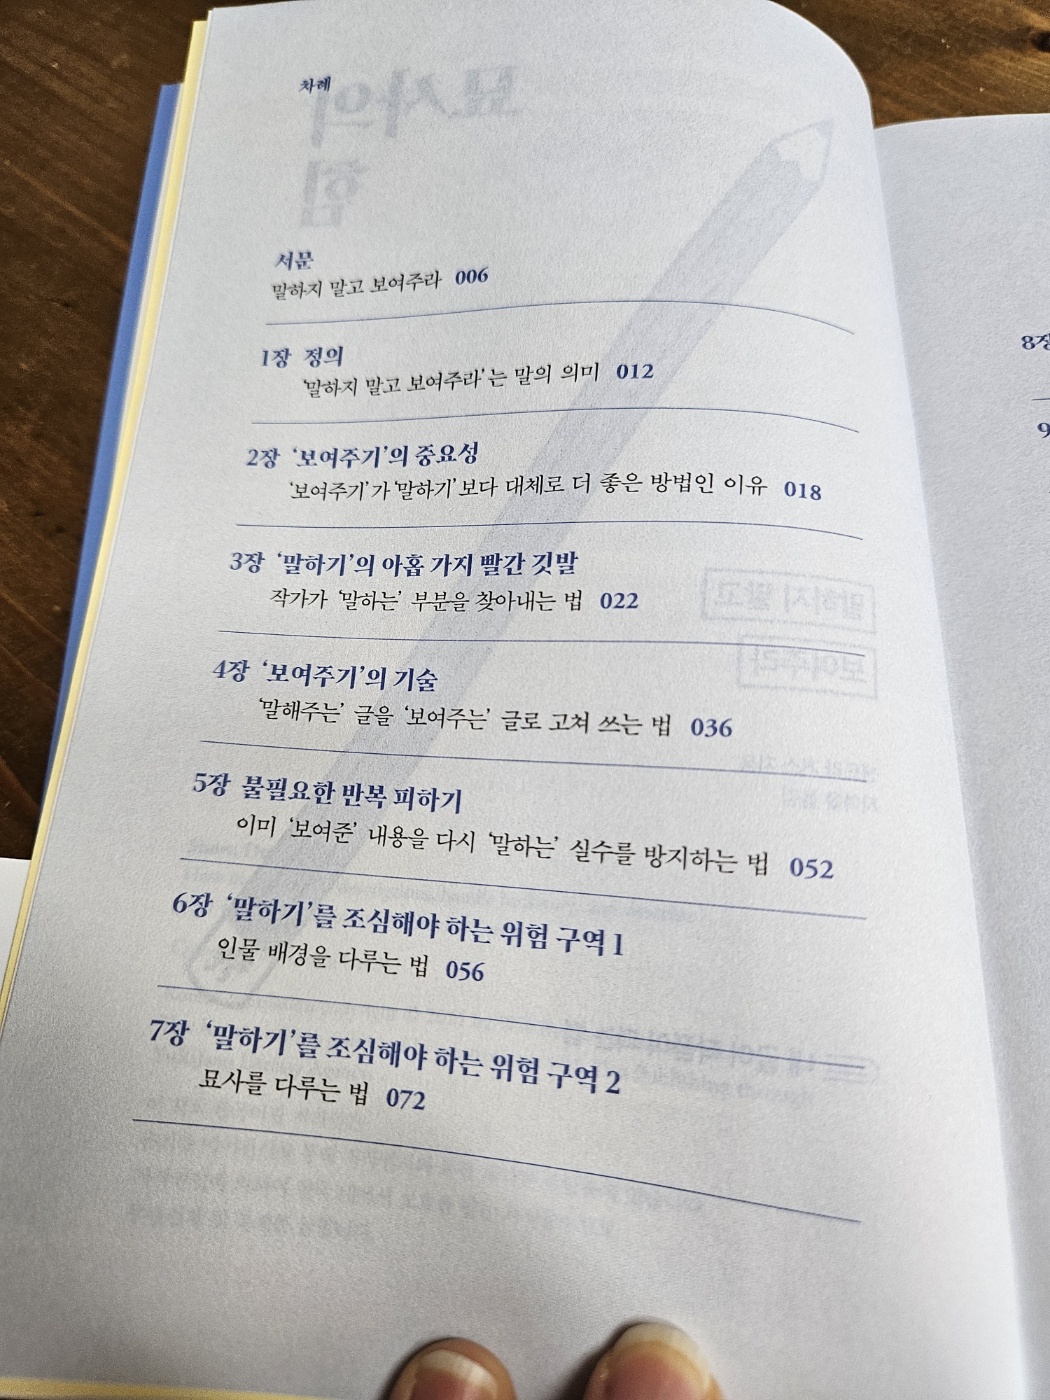 차례
서문
말하지 말고 보여주라 006
1장 정의
'말하지 말고 보여주라'는 말의 의미 012
2장 '보여주기'의 중요성
'보여주기'가 '말하기'보다 대체로 더 좋은 방법인 이유 018
3장 '말하기'의 아홉 가지 빨간 깃발
작가가 '말하는' 부분을 찾아내는 법 022
4장 '보여주기'의 기술
'말해주는' 글을 '보여주는' 글로 고쳐 쓰는 법 036
5장 불필요한 반복 피하기
이미 '보여준' 내용을 다시 '말하는' 실수를 방지하는 법 052
6장 '말하기'를 조심해야 하는 위험 구역 1
인물 배경을 다루는 법 056
7장 '말하기'를 조심해야 하는 위험 구역 2
묘사를 다루는 법 072
묘사의
힘
말하지 말고
보여주라
8장
9